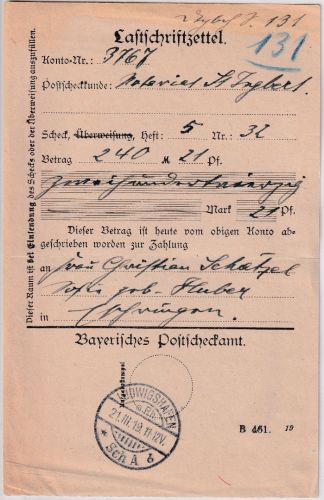 S. 131
131
Lastschriftzettel.
Konto-Nr.: 3167
Postscheckkunde: Notariat St Ingbert.
Scheck, Überweisung, Heft: 5 Nr.: 32
Betrag 240 M 21 Pf.
zweihundertvierzig
Mark 21 Pf.
Dieser Betrag ist heute vom obigen Konto ab-
geschrieben worden zur Zahlung
an Frau Christian Schätzel
geb. Huber
in
Bayerisches Postscheckamt.
Dieser Raum ist bei Einsendung des Schecks oder der Überweisung auszufüllen.
LUDWIGSHAFEN
a. Rh.
21.III.19.11-12V.
* Sch A 6
B 461. 19